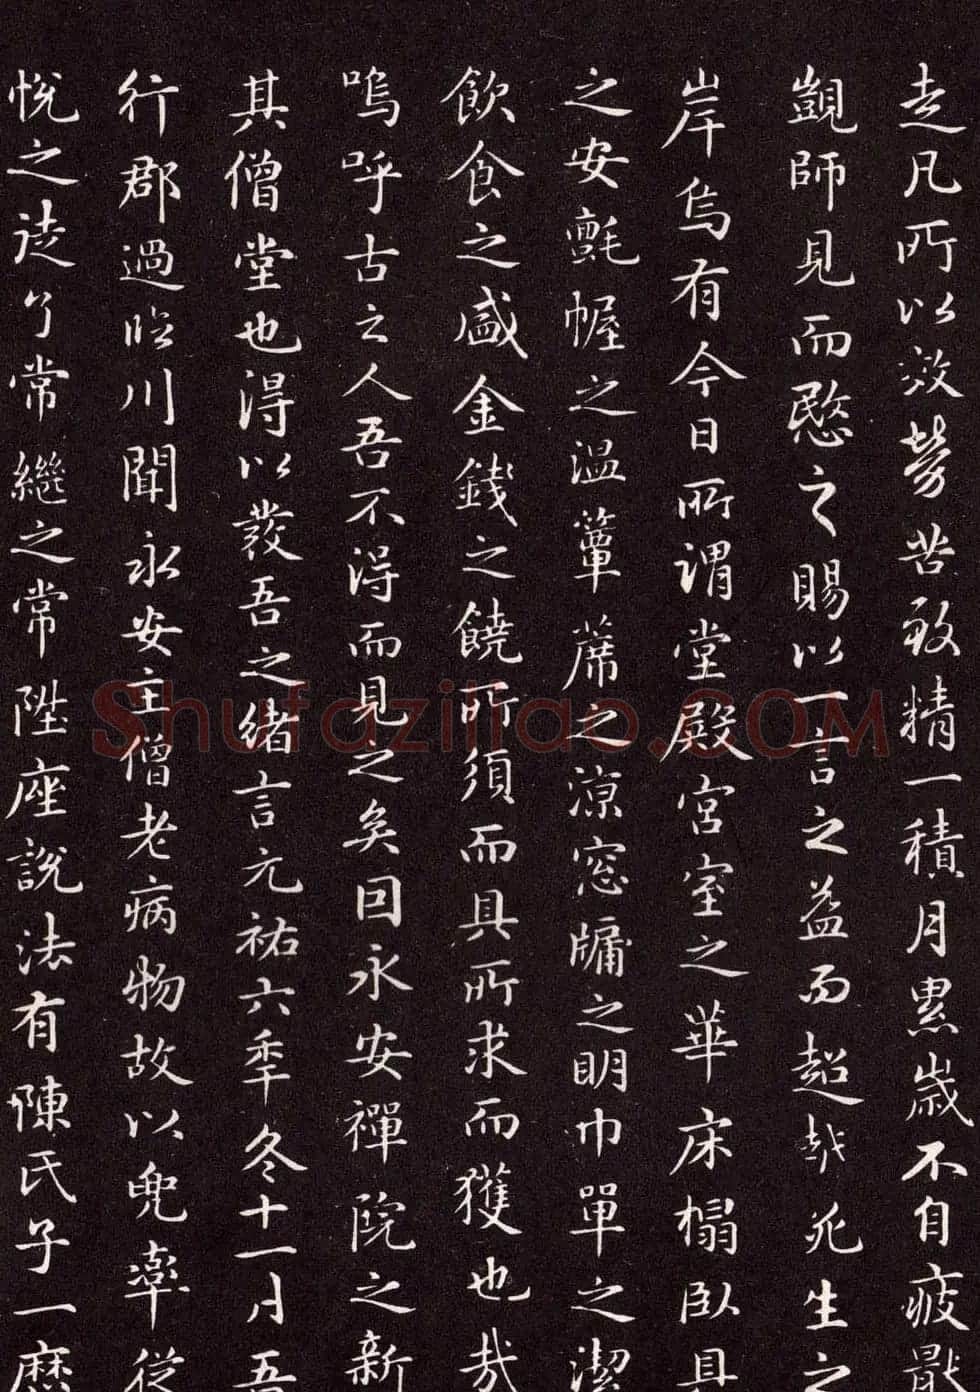 走凡所以效勞苦致精一積月累歲不自疲厭
覬師見而愍之賜以一言之益而超越死生之
岸烏有今日所謂堂殿宮室之華床榻臥具
之安氈幄之溫簟蓆之涼窓牖之明巾單之潔
飲食之盛金錢之饒所須而具所求而獲也哉
嗚呼古之人吾不得而見之矣因永安禪院之新
其僧堂也得以發吾之緒言元祐六秊冬十一月吾
行郡過臨川聞永安主僧老病物故以兜率從
悅之徒了常繼之常陞座說法有陳氏子一歷
Shufaziliao.COM